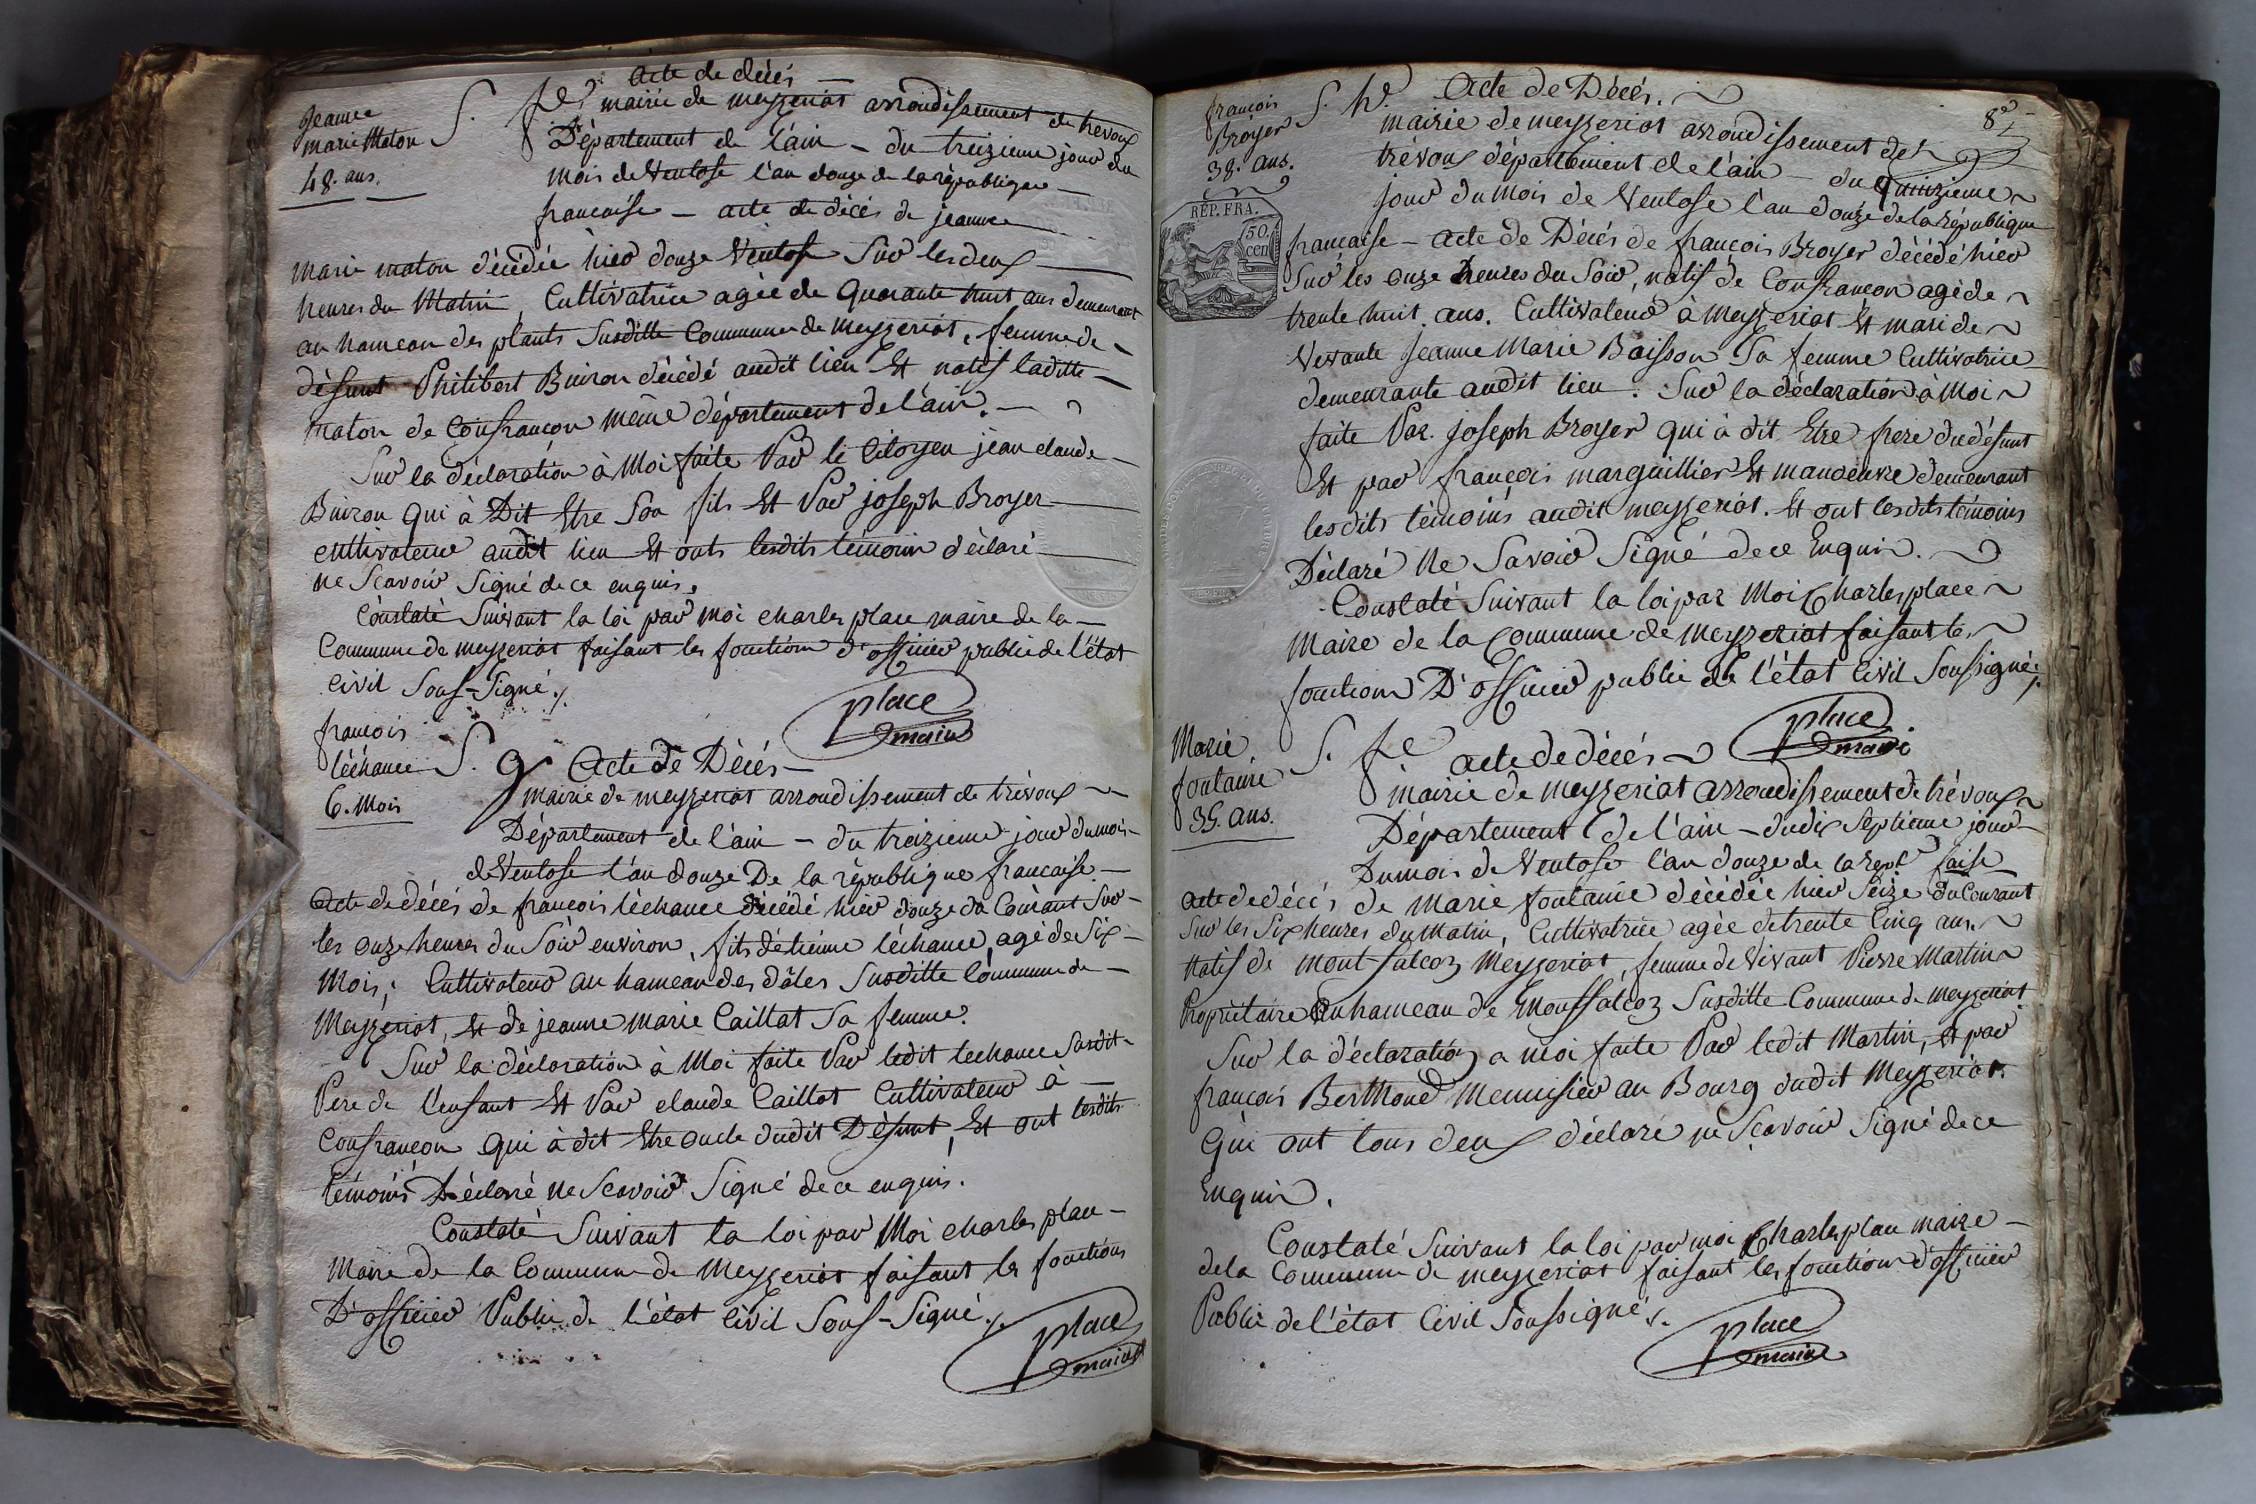 Jeanne
marie Maton
48. ans.
S. fe. Acte de décés
mairie de meyzeriat arrondissement de trevoux
Département de l'ain - du treizieme jour du
mois de Ventose l'an douze de la république
francaise - acte de décés de jeanne
marie maton décédée hier douze Ventose Sur les deux
heures du Matin, Cultivatrice agée de Quarante huit ans demeurant
au hameau des plants Susditte Commune de Meyzeriat, femme de
défunt Philibert Buiron décédé audit lieu Et natif laditte
maton de Confrancon même département de l'ain.
Sur la déclaration à Moi faite Par le Citoyen jean claude
Buiron qui à Dit Etre Son fils Et Par joseph Broyer
cultivateur audit lieu Et onts lesdits témoin déclaré
ne Scavoir Signé de ce enquis.
Constaté Suivant la loi par Moi charles place maire de la
Commune de meyzeriat faisant les fonction d'officier public de l'état
Civil Sous-Signé ./.
place
maire
francois
léchance
6. Mois
S. g Acte de Décés
mairie de meyzeriat arrondissement de trévoux
Département de l'ain - du treizieme jour du mois
de Ventose l'an douze De la république francaise.
Acte de décés de francois léchance décédé hier douze du Courant Sur
les onze heures du Soir environ, fils détienne léchance, agé de Six
Mois; Cultivateur au hameau des dâles Susditte Commune de
Meyzeriat, Et de jeanne marie Caillat Sa femme.
Sur la déclaration à Moi faite Par ledit lechance Susdit
Pere de l'enfant Et Par claude Caillat Cultivateur à
Confrancon qui à dit Etre oncle dudit Défunt, Et ont lesdits
témoins Déclaré ne Scavoir Signé de ce enquis.
Constaté Suivant la loi par Moi charles place
Maire de la Commune de Meyzeriat faisant les fonctions
D'officier Public de l'état Civil Sous-Signé ./.
place
maire
8e
francois
Broyer
38. ans.
S. h. Acte de Décés.
mairie de meyzeriat arrondissement de
trévoux département de l'ain - du quinzieme
jour du mois de Ventose l'an douze de la république
REP. FRA.
50.
cen
francaise - Acte de Décés de francois Broyer décédé hier
Sur les onze heures du Soir, natif de Confrancon agé de
trente huit ans. Cultivateur à Meyzeriat Et mari de
Vivante Jeanne Marie Boisson Sa femme Cultivatrice
demeurante audit lieu. Sur la déclaration à Moi
faite Par Joseph Broyer qui à dit Etre frere du défunt
Et par françois marguillier Et manoeuvre demeurant
lesdits témoins audit meyzeriat. Et ont lesdits témoins
Déclaré Ne Savoir Signé de ce Enquis.
Constaté Suivant la loi par Moi Charles place
Maire de la Commune de Meyzeriat faisant les
fonctions D'officier public de l'état Civil Soussigné ./.
place
maire
Marie
fontaine
35. ans.
S. fe. acte de décés
mairie de meyzeriat arrondissement de trévoux
Département de l'ain - du dix Septieme jour
Du mois de Ventose l'an douze de la repe. faise
acte de décés de Marie fontaine décédée hier Seize du Courant
Sur les Six heures du Matin, Cultivatrice agée de trente Cinq ans.
Natif de Montfalcon Meyzeriat, femme de Vivant Pierre Martin
Propriétaire au hameau de Monffalcon Susditte Commune de Meyzeriat
Sur la déclaration a moi faite Par ledit Martin, Et par
françois Berthoud Menuisier au Bourg dudit Meyzeriat.
Qui ont tous deux déclaré ne Scavoir Signé de ce
Enquis.
Constaté Suivant la loi par moi Charles place maire
de la Commune de meyzeriat faisant les fonction d'officier
Public de l'état Civil Soussigné ./.
place
maire